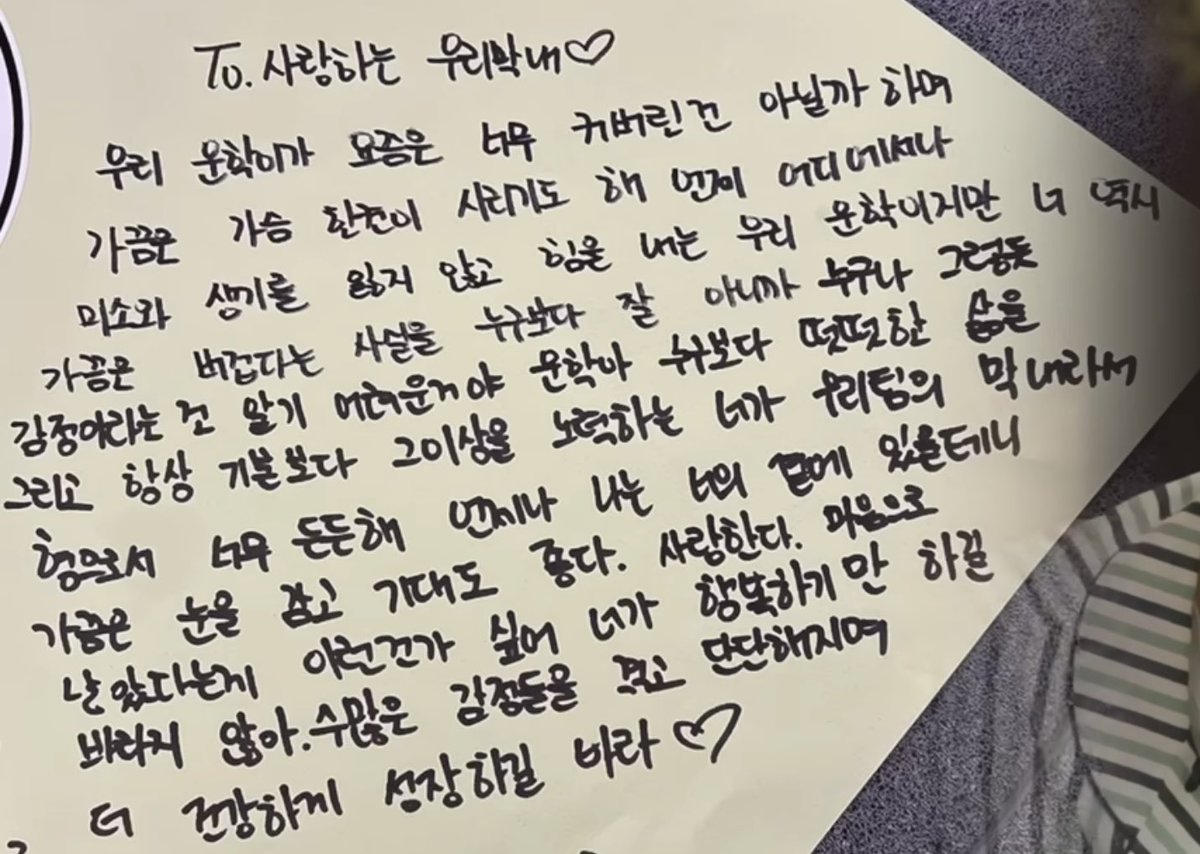 To. 사랑하는 우리막내♡
우리 운학이가 요즘은 너무 커버린건 아닐까 하며
가끔은 가슴 한켠이 시리기도 해 언제 어디에서나
미소와 생기를 잃지 않고 힘을 내는 우리 운학이지만 너 역시
가끔은 버겁다는 사실을 누구보다 잘 아니까 누구나 그렇듯
감정이라는건 알기 어려운거야 운학아 누구보다 떳떳한 삶을
그리고 항상 기본보다 그이상을 노력하는 너가 우리팀의 막내라서
형으로서 너무 든든해 언제나 나는 너의 곁에 있을테니
가끔은 눈을 감고 기대도 좋다. 사랑한다. 마음으로
낳았다는게 이런건가 싶어 너가 행복하기만 하길
바라지 않아. 수많은 감정들을 겪고 단단해지며
더 건강하게 성장하길 바라♡